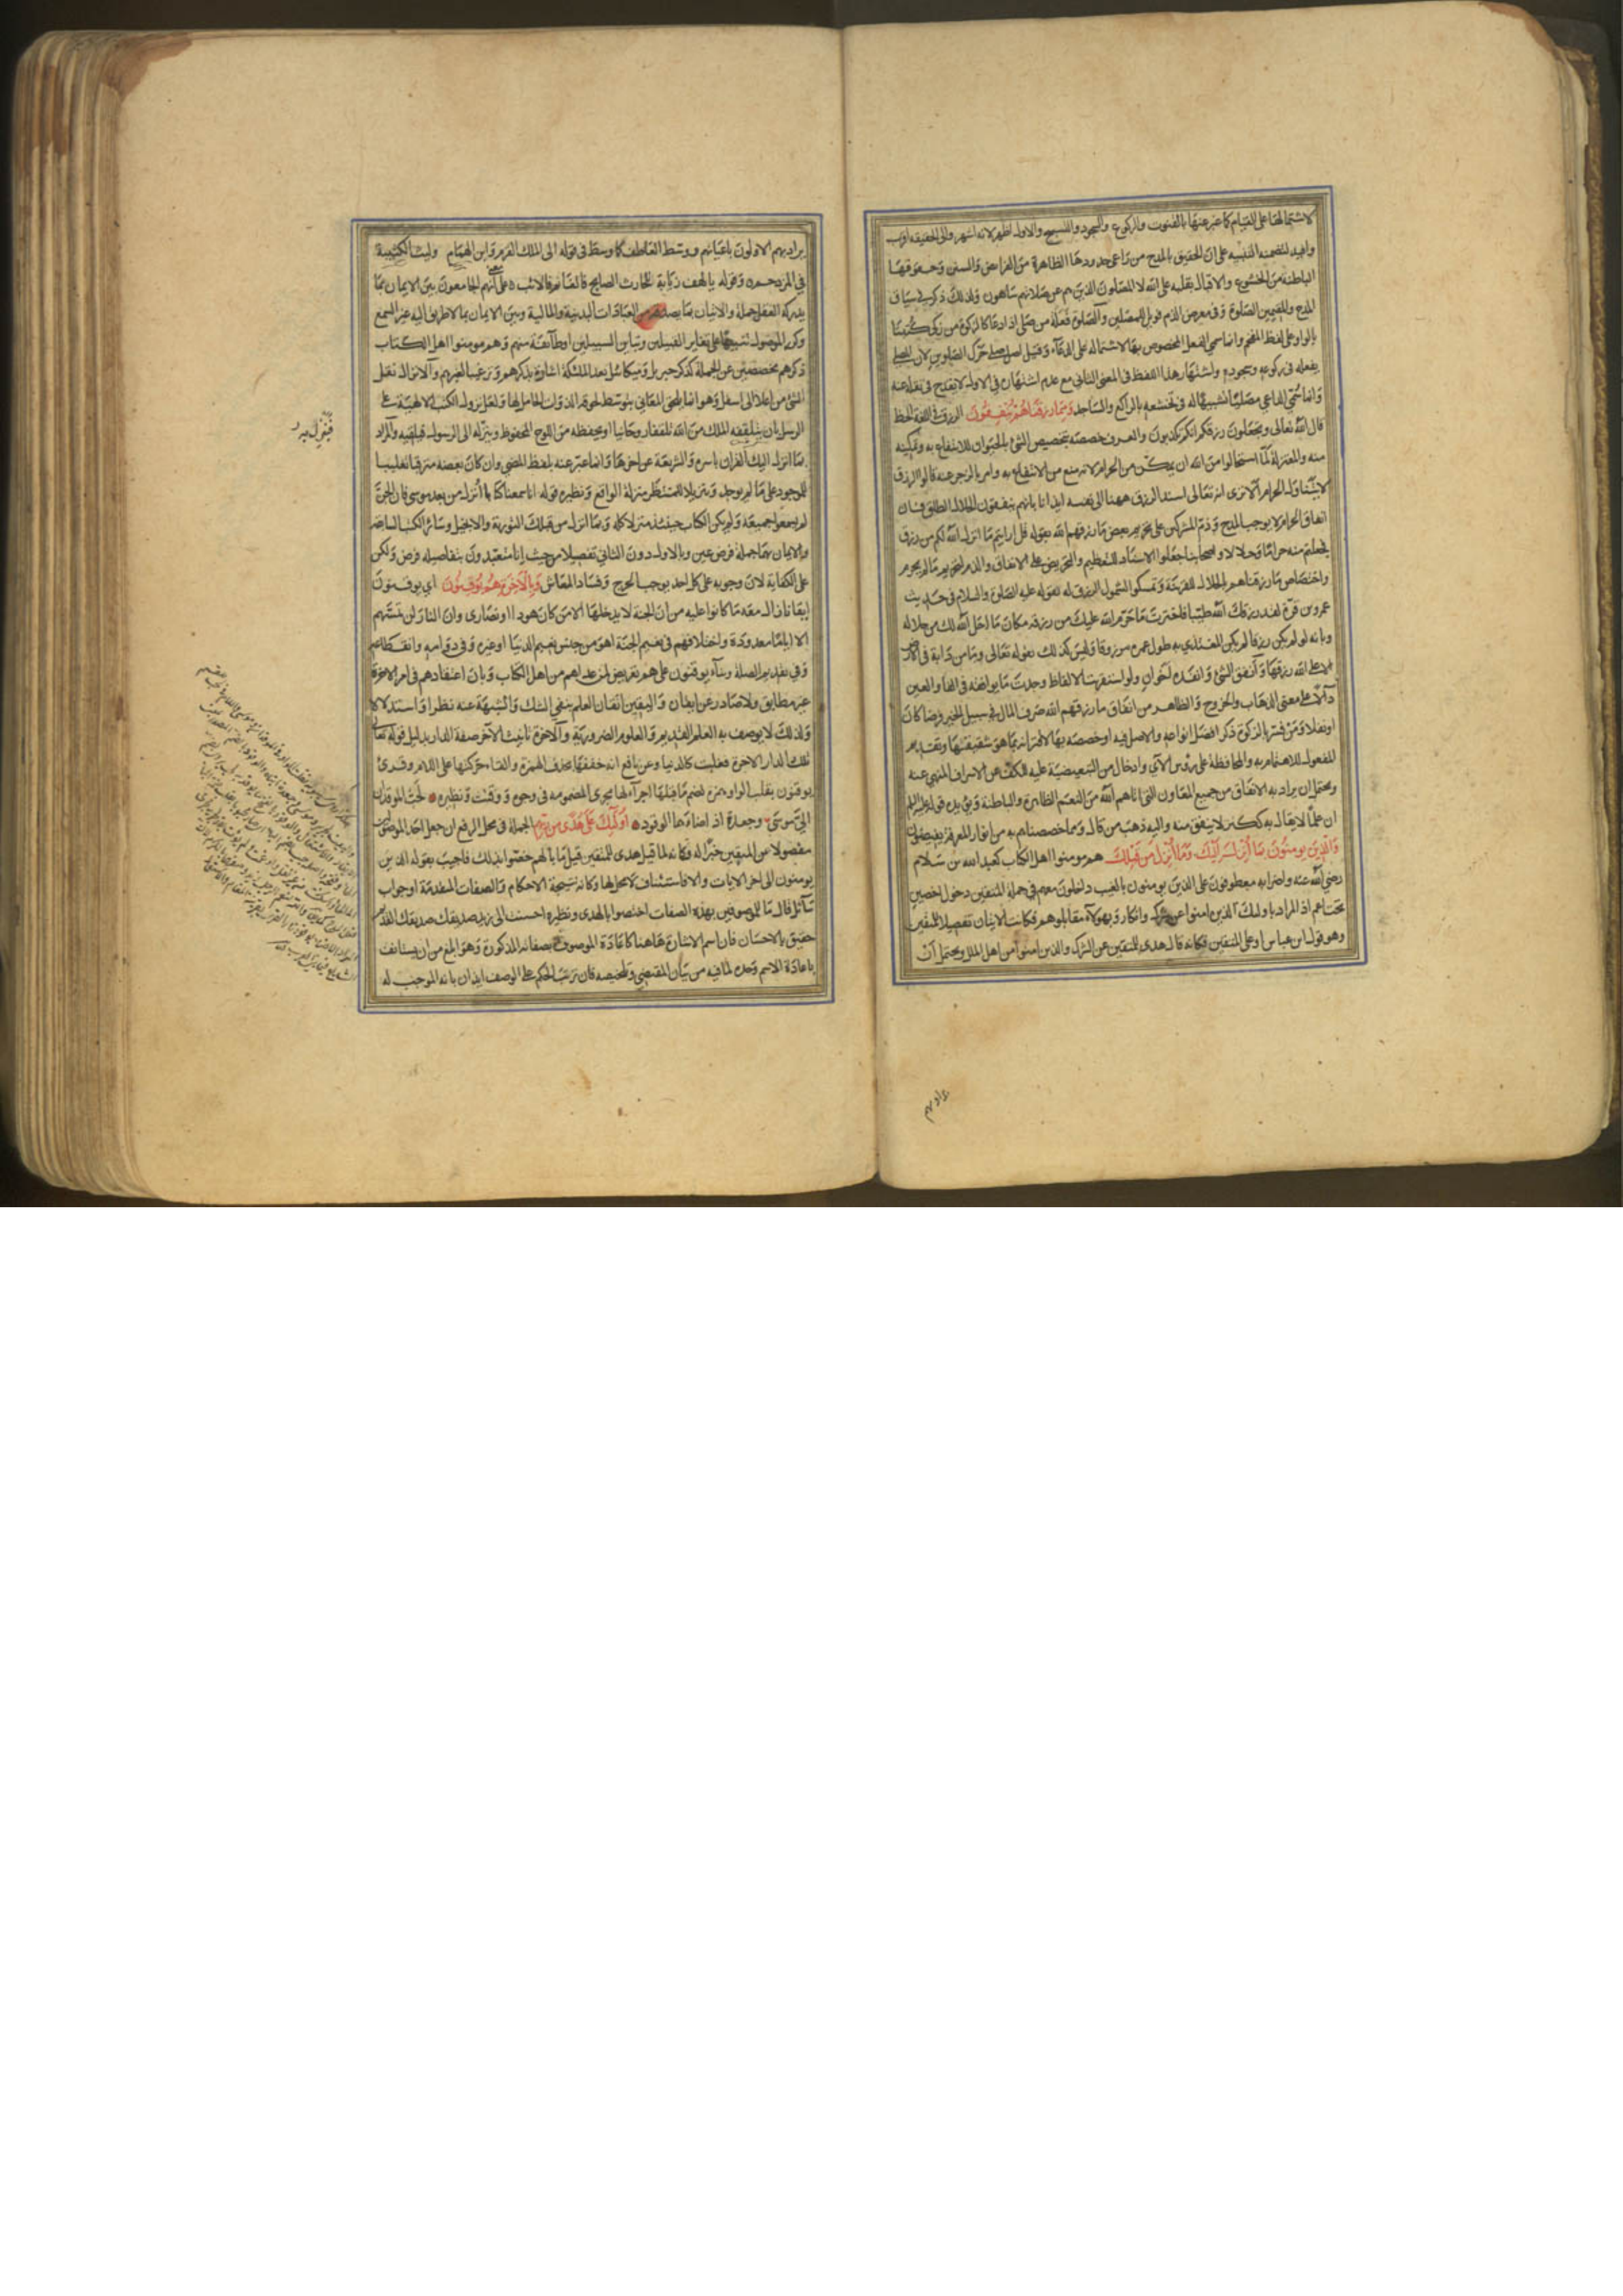 لاشتمالها على القيام كما عبر عنها بالقنوت والركوع والسجود والتسبيح والاول اظهر لانه اشهر والى الحقيقة اقرب
وافيد لتضمنه التنبيه على ان الحقيق بالمدح من راعى حدودها الظاهرة من الفرائض والسنن وحقوقها
الباطنة من الخشوع والاقبال بقلبه على الله لا المصلون الذين هم عن صلاتهم ساهون ولذلك ذكر في سياق
المدح والمقيمين الصلوة وفي معرض الذم فويل للمصلين والصلوة فعلة من صلى اذا دعا كالزكوة من زكى كتبتا
بالواو على لفظ المفخم وانما سمى الفعل المخصوص بها لاشتماله على الدعاء وقيل اصل صلى حرك الصلوين لان المصلى
يفعله في ركوعه وسجوده واشتهار هذا اللفظ في المعنى الثاني مع عدم اشتهاره في الاول لا يقدح في نقله عنه
وانما سمى الداعي مصليا تشبيها له في تخشعه بالراكع والساجد ومما رزقناهم ينفقون الرزق في اللغة الحظ
قال الله تعالى وتجعلون رزقكم انكم تكذبون والعرف خصصه بتخصيص الشئ بالحيوان للانتفاع به وتمكينه
منه والمعتزلة لما استحالوا من الله ان يمكن من الحرام لانه منع من الانتفاع به وامر بالزجر عنه قالوا الرزق
لا يتناول الحرام الا ترى انه تعالى اسند الرزق ههنا الى نفسه ايذانا بانهم ينفقون الحلال الطلق فان
انفاق الحرام لا يوجب المدح وذم المشركين على تحريم بعض ما رزقهم الله بقوله قل ارايتم ما انزل الله لكم من رزق
فجعلتم منه حراما وحلالا واصحابنا جعلوا الاسناد للتعظيم والتحريض على الانفاق والذم لتحريم ما لم يحرم
واختصاص ما رزقناهم بالحلال للقرينة وتمسكوا لشمول الرزق له بقوله عليه الصلوة والسلام في حديث
عمرو بن قرة لقد رزقك الله طيبا فاخترت ما حرم الله عليك من رزقه مكان ما احل الله لك من حلاله
وبانه لو لم يكن رزقا لم يكن المغتذي به طول عمره مرزوقا وليس كذلك لقوله تعالى وما من دابة في الارض
الا على الله رزقها وانفق الشئ وانفده اخوان ولو استقريت الالفاظ وجدت ما يوافقه في الفاء والعين
دالا على معنى الذهاب والخروج والظاهر من انفاق ما رزقهم الله صرف المال في سبيل الخير فرضا كان
او نفلا ومن فسره بالزكوة ذكر افضل انواعه والاصل فيه او خصصه بها لاقترانه بما هو شقيقتها وتقديم
المفعول للاهتمام به والمحافظة على رؤس الآي وادخال من التبعيضية عليه للكف عن الاسراف المنهي عنه
ويحتمل ان يراد به الانفاق من جميع المعاون التي اتاهم الله من النعم الظاهرة والباطنة ويؤيده قوله عليه السلم
ان علما لا يقال به ككنز لا ينفق منه واليه ذهب من قال ومما خصصناهم به من انوار المعرفة يفيضون
والذين يومنون بما انزل اليك وما انزل من قبلك هم مومنوا اهل الكتاب كعبد الله بن سلام
رضي الله عنه واضرابه معطوفون على الذين يومنون بالغيب داخلون معهم في جملة المتقين دخول اخصين
تحت اعم اذ المراد باولئك الذين امنوا عن شرك وانكار وبهؤلاء مقابلوهم فكانت الايتان تفصيلا للمتقين
وهو قول ابن عباس او على المتقين فكانه قال هدى للمتقين عن الشرك والذين امنوا من اهل الملل ويحتمل ان
يراد بهم
يراد بهم الاولون باعيانهم ووسط العاطف كما وسط في قوله الى الملك القرم وابن الهمام وليث الكتيبة
في المزدحم وقوله يا لهف زيابة للحارث الصابح فالغانم فالايب على معنى انهم الجامعون بين الايمان بما
يدركه العقل جملة والاتيان بما يصدقه من العبادات البدنية والمالية وبين الايمان بما لا طريق اليه غير السمع
وكرر الموصول تنبيها على تغاير القبيلين وتباين السبيلين او طائفة منهم وهم مومنوا اهل الكتاب
ذكرهم مخصصين عن الجملة كذكر جبريل وميكائيل بعد الملئكة اشارة بذكرهم وترغيبا لغيرهم والانزال نقل
الشئ من اعلا الى اسفل وهو انما يلحق المعاني بتوسط لحوقه الذوات الحاملة لها ولعل نزول الكتب الالهية على
الرسل بان يتلقفه الملك من الله تلقفا روحانيا او يحفظه من اللوح المحفوظ وينزله الى الرسول فيلقيه والمراد
بما انزل اليك القران باسره والشريعة عن اخرها وانما عبر عنه بلفظ المضي وان كان بعضه مترقبا تغليبا
للموجود على ما لم يوجد وتنزيلا للمنتظر منزلة الواقع ونظيره قوله انا سمعنا كتابا انزل من بعد موسى فان الجن
لم يسمعوا جميعه ولم يكن الكتاب حينئذ منزلا كله وبما انزل من قبلك التورية والانجيل وسائر الكتب السابقة
والايمان بهما جملة فرض عين وبالاول دون الثاني تفصيلا من حيث انا متعبدون بتفاصيله فرض ولكن
على الكفاية لان وجوبه على كل احد يوجب الحرج وفساد المعاش وبالآخرة هم يوقنون اي يوقنون
ايقانا زال معه ما كانوا عليه من ان الجنة لا يدخلها الا من كان هودا او نصارى وان النار لن تمسهم
الا اياما معدودة واختلافهم في نعيم الجنة اهو من جنس نعيم الدنيا او غيره وفي دوامه وانقطاعه
وفي تقديم الصلة وبناء يوقنون على هم تعريض لمن عداهم من اهل الكتاب وبان اعتقادهم في امر الاخرة
غير مطابق ولا صادر عن ايقان واليقين اتقان العلم بنفي الشك والشبهة عنه نظرا واستدلالا
ولذلك لا يوصف به العلم القديم والعلوم الضرورية والآخرة تانيث الآخر صفة الدار بدليل قوله تعالى
تلك الدار الاخرة فغلبت كالدنيا وعن نافع انه خففها بحذف الهمزة والقاء حركتها على اللام وقرئ
يوقنون بقلب الواو همزة لضم ما قبلها اجراء لها مجرى المضمومة في وجوه ووقتت ونظيره لحب الموقدان
الى موسى وجعدة اذ اضاءهما الوقود اولئك على هدى من ربهم الجملة في محل الرفع ان جعل احد الموصولين
مفصولا عن المتقين خبر له فكانه لما قيل هدى للمتقين قيل ما بالهم خصوا بذلك فاجيب بقوله الذين
يومنون الى اخر الايات والا فاستئناف لا محل لها وكانه نتيجة الاحكام والصفات المتقدمة او جواب
سائل قال ما للموصوفين بهذه الصفات اختصوا بالهدى ونظيره احسنت الى زيد صديقك صديقك القديم
حقيق بالاحسان فان اسم الاشارة هاهنا كاعادة الموصوف بصفاته المذكورة وهو ابلغ من ان يستانف
باعادة الاسم وحده لما فيه من بيان المقتضي وتلخيصه فان ترتب الحكم على الوصف ايذان بانه الموجب له